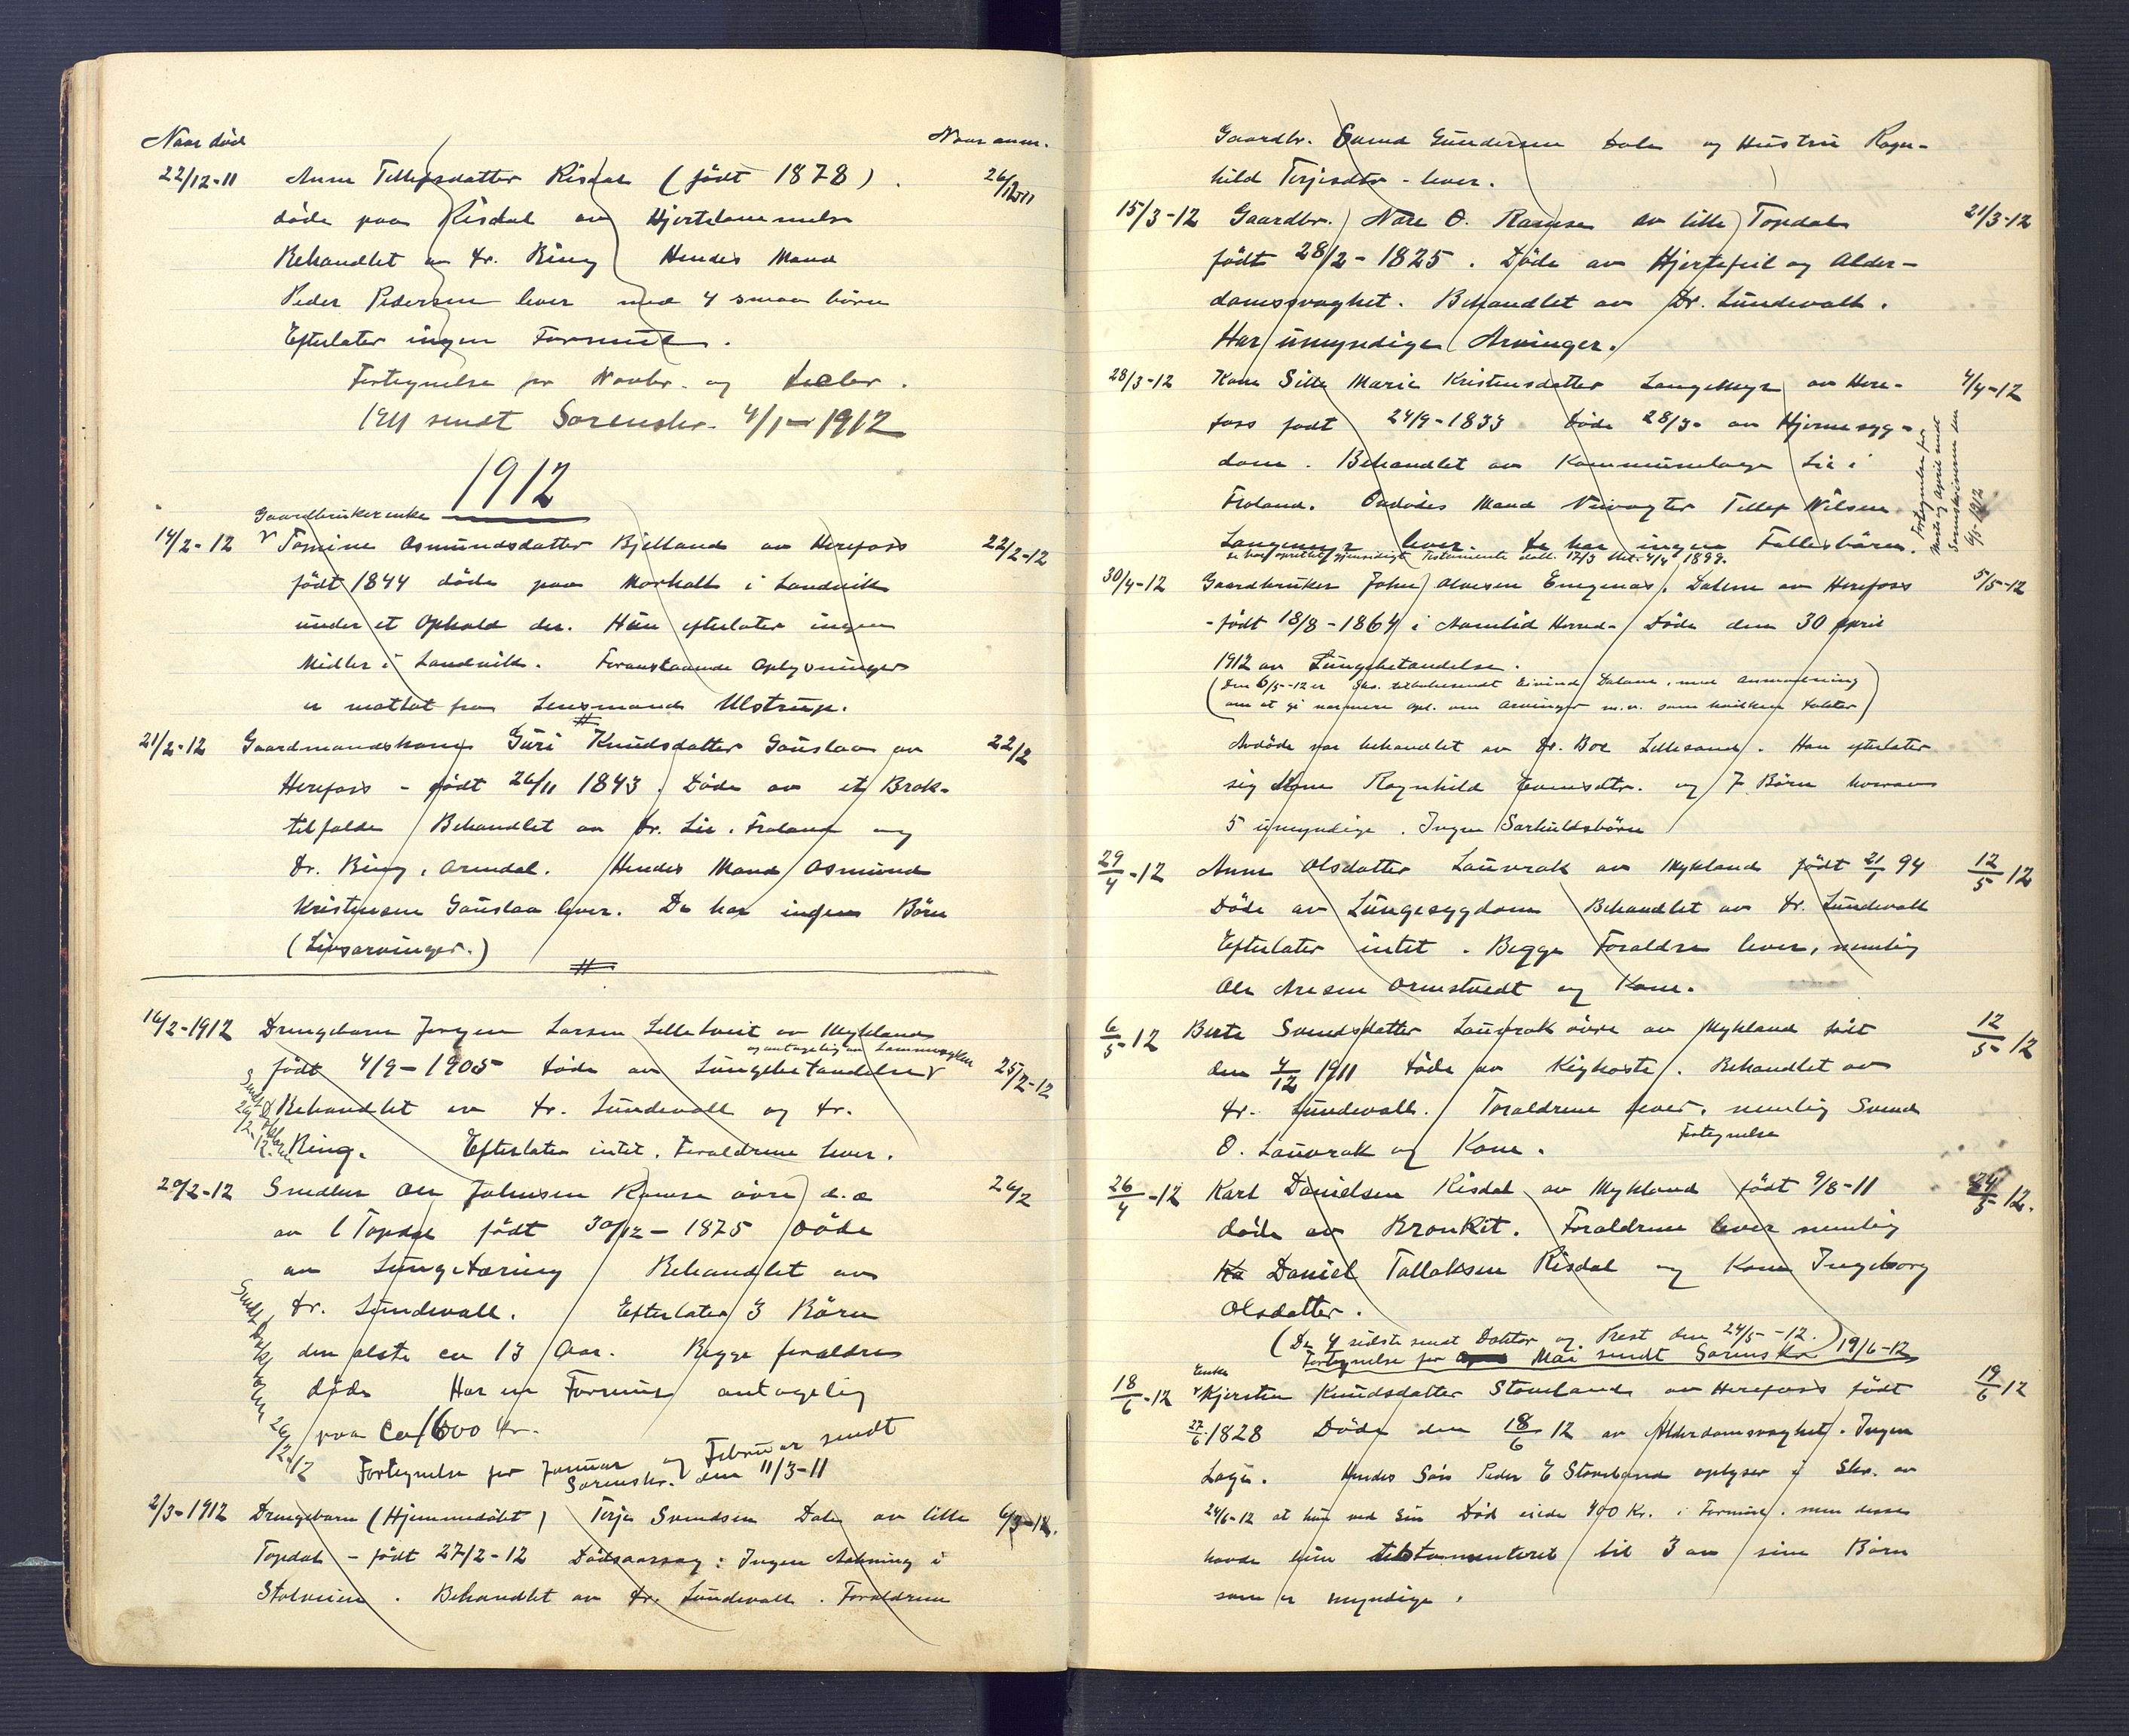 Naar död
Naar anm.
22/12-11 Anne Tellefsdatter Risdal (födt 1878). 26/12-11
döde paa Risdal av Hjertelammelse
Behandlet av Dr. Ring Hendes Mand
Peder Pedersen lever med 4 smaa börn
Efterlater ingen Formue.
Fortegnelse for Novbr. og Decbr.
1911 sendt Sorenskr. 4/1-1912
1912
Gaardbrukerenke
14/2-12 Tomine Osmundsdatter Bjelland av Herefoss 22/2-12
födt 1844 döde paa Morholt i Landvik
under et Ophold der. Hun efterlater ingen
Midler i Landvik. Foranstaaende Oplysninger
er mottat fra Lensmand Ulstrup.
21/2-12 Gaardmandskone Guri Knudsdatter Gauslaa av 22/2
Herefoss - födt 26/11 1843. Döde av et Brok-
tilfælde Behandlet av Dr. Lie, Froland og
Dr. Ring, Arendal. Hendes Mand Osmund
Kristensen Gauslaa lever. De har ingen Börn
(Livsarvinger.)
16/2-1912 Drengebarn Jörgen Larsen Lilletveit av Mykland
og antagelig av Lammesyken
födt 4/9-1905 döde av Lungebetændelse 25/2-12
Behandlet av Dr. Lundevall og Dr.
Ring. Efterlater intet. Forældrene lever.
20/2-12 Snedker Ole Johnsen Ramse övre d.æ 26/2
av l Topdal födt 30/12-1875 Döde
av Lungetæring Behandlet av
Dr. Lundevall. Efterlater 3 Börn
den ælste ca 13 Aar. Begge forældre
döde Har en Formue antagelig
paa ca 1600 Kr.
Fortegnelse for Januar og Februar sendt
Sorenskr. den 11/3-11
2/3-1912 Drengebarn (Hjemmedöbt) Terje Svendsen Dale av lille 6/3-12.
Topdal - födt 27/2-12 Dödsaarsag: Ingen Aabning i
Stolveien. Behandlet av Dr. Lundevall. Forældrene
Gaardbr. Svend Gundersen Dale og Hustru Ragn-
hild Terjesdtr - lever.
15/3-12 Gaardbr. Nære O. Ramse av lille Topdal 21/3-12
födt 28/2-1825. Döde av Hjertefeil og Alder-
domssvaghet. Behandlet av Dr. Lundevall.
Har umyndige Arvinger.
28/3-12 Kone Sille Marie Kristensdatter Langemyr av Here- 4/4-12
foss födt 24/9-1833 Döde 28/3- av Hjernesyg-
dom. Behandlet av Kommunelæge Lie i
Froland. Avdödes Mand Veivogter Tellef Nilsen
Langemyr lever. De har ingen Fællesbörn.
de har oprettet gjensidigt Testamente dat. 17/3 thl. 4/4 1899.
Fortegnelse for
Marts og April sendt
Sorenskriveren den
6/5-1912
30/4-12 Gaardbruker John Olvesen Enegenæs, Dalen av Herefoss 5/5-12
- födt 18/8-1864 i Aamlid Herred- Döde den 30 April
1912 av Lungebetændelse.
(Den 6/5-12 er Skr. tilbakesendt Eivind Dalane, med anmodning
om at gi nærmere opl. om Arvinger m.v. som hvilken doktor)
Avdöde var behandlet av Dr. Boe Lillesand. Han efterlater
sig Kone Ragnhild Evensdtr. og 7 Börn hvorav
5 umyndige. Ingen Særkuldsbörn
29/4-12 Anne Olsdatter Lauvrak av Mykland födt 21/1 94 12/5 12
Döde av Lungesygdom Behandlet av Dr. Lundevall
Efterlater intet. Begge Forældre lever, nemlig
Ole Aresen Ormstvedt og Kone.
6/5-12 Berte Svendsdatter Lauvrak övre av Mykland födt 12/5-12
den 4/12 1911 döde av Kighoste. Behandlet av
Dr. Lundevall. Forældrene lever, nemlig Svend
O. Lauvrak og Kone.
Fortegnelse
26/4-12 Karl Danielsen Risdal av Mykland födt 9/8-11 24/5-12.
döde av Bronkit. Forældrene lever nemlig
Daniel Tallaksen Risdal og Kone Ingeborg
Olsdatter.
(De 4 sidste sendt Doktor og Prest den 24/5-12.)
Fortegnelse for Mai sendt Sorenskr 19/6-12
Enke
18/6-12 Kjersten Knudsdatter Stoveland av Herefoss födt 19/6 12
27/6 1828 Döde den 18/6 12 av Alderdomssvaghet. Ingen
Læge. Hendes Sön Peder E Stoveland oplyser i Skr. av
24/6-12 at hun ved sin Död eiede 400 Kr. i Formue, men disse
havde hun testamenteret til 3 av sine Börn
som er myndige.